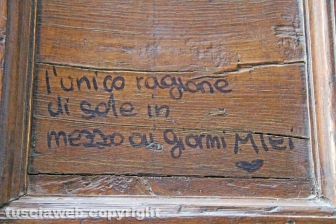 l'unico ragione
di sole in
mezzo ai giorni MIEI
tusciaweb copyright